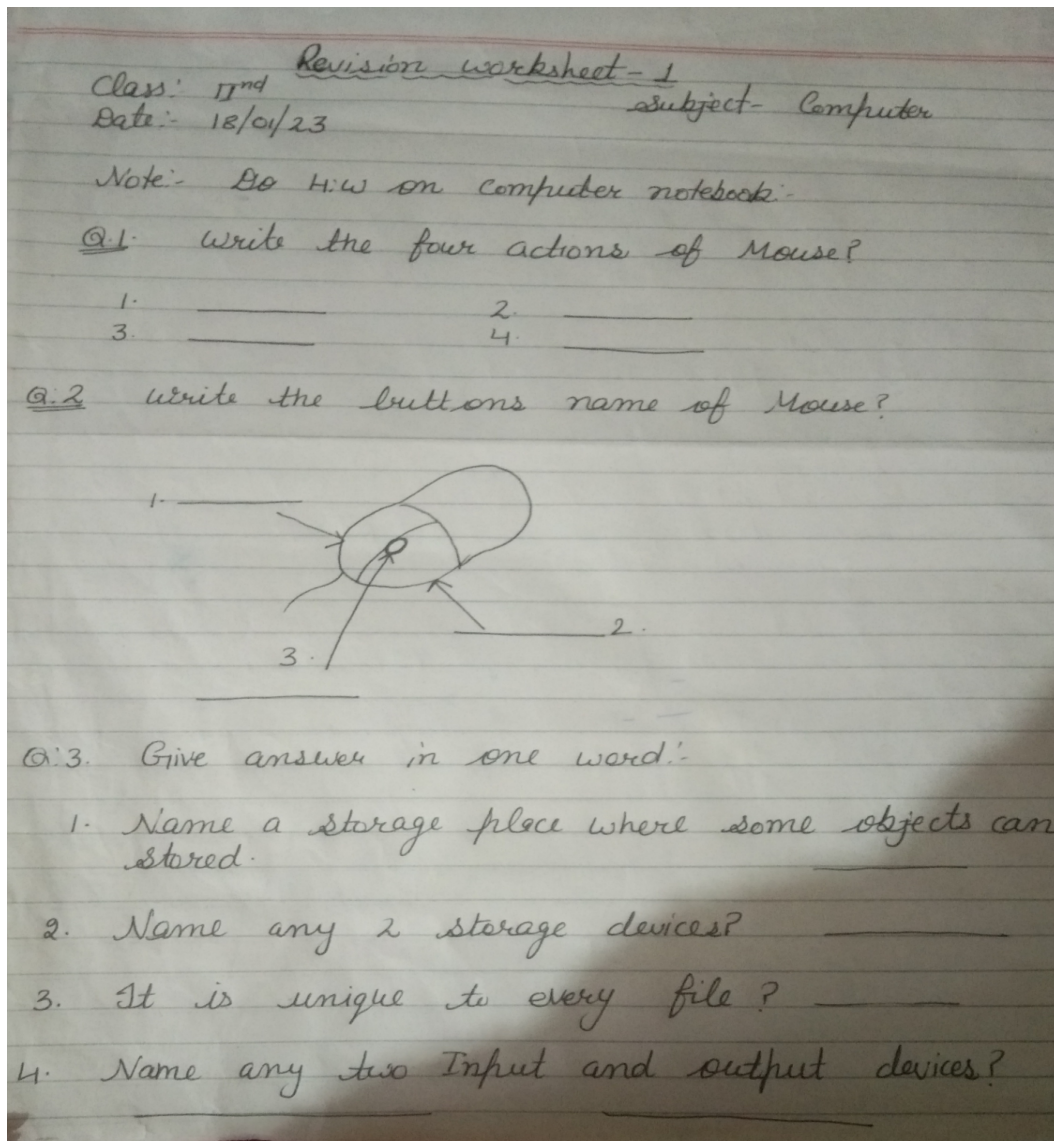 Revision worksheet - 1
Class: IInd
Subject- Computer
Date:- 18/01/23
Note:- Do H.W on computer notebook:-
Q.1. Write the four actions of Mouse?
1. ________ 2. ________
3. ________ 4. ________
Q.2 Write the buttons name of Mouse?
1. ________
________ 2.
3.
Q.3. Give answer in one word:-
1. Name a storage place where some objects can
stored. ________
2. Name any 2 storage devices? ________
3. It is unique to every file? ________
4. Name any two Input and output devices?